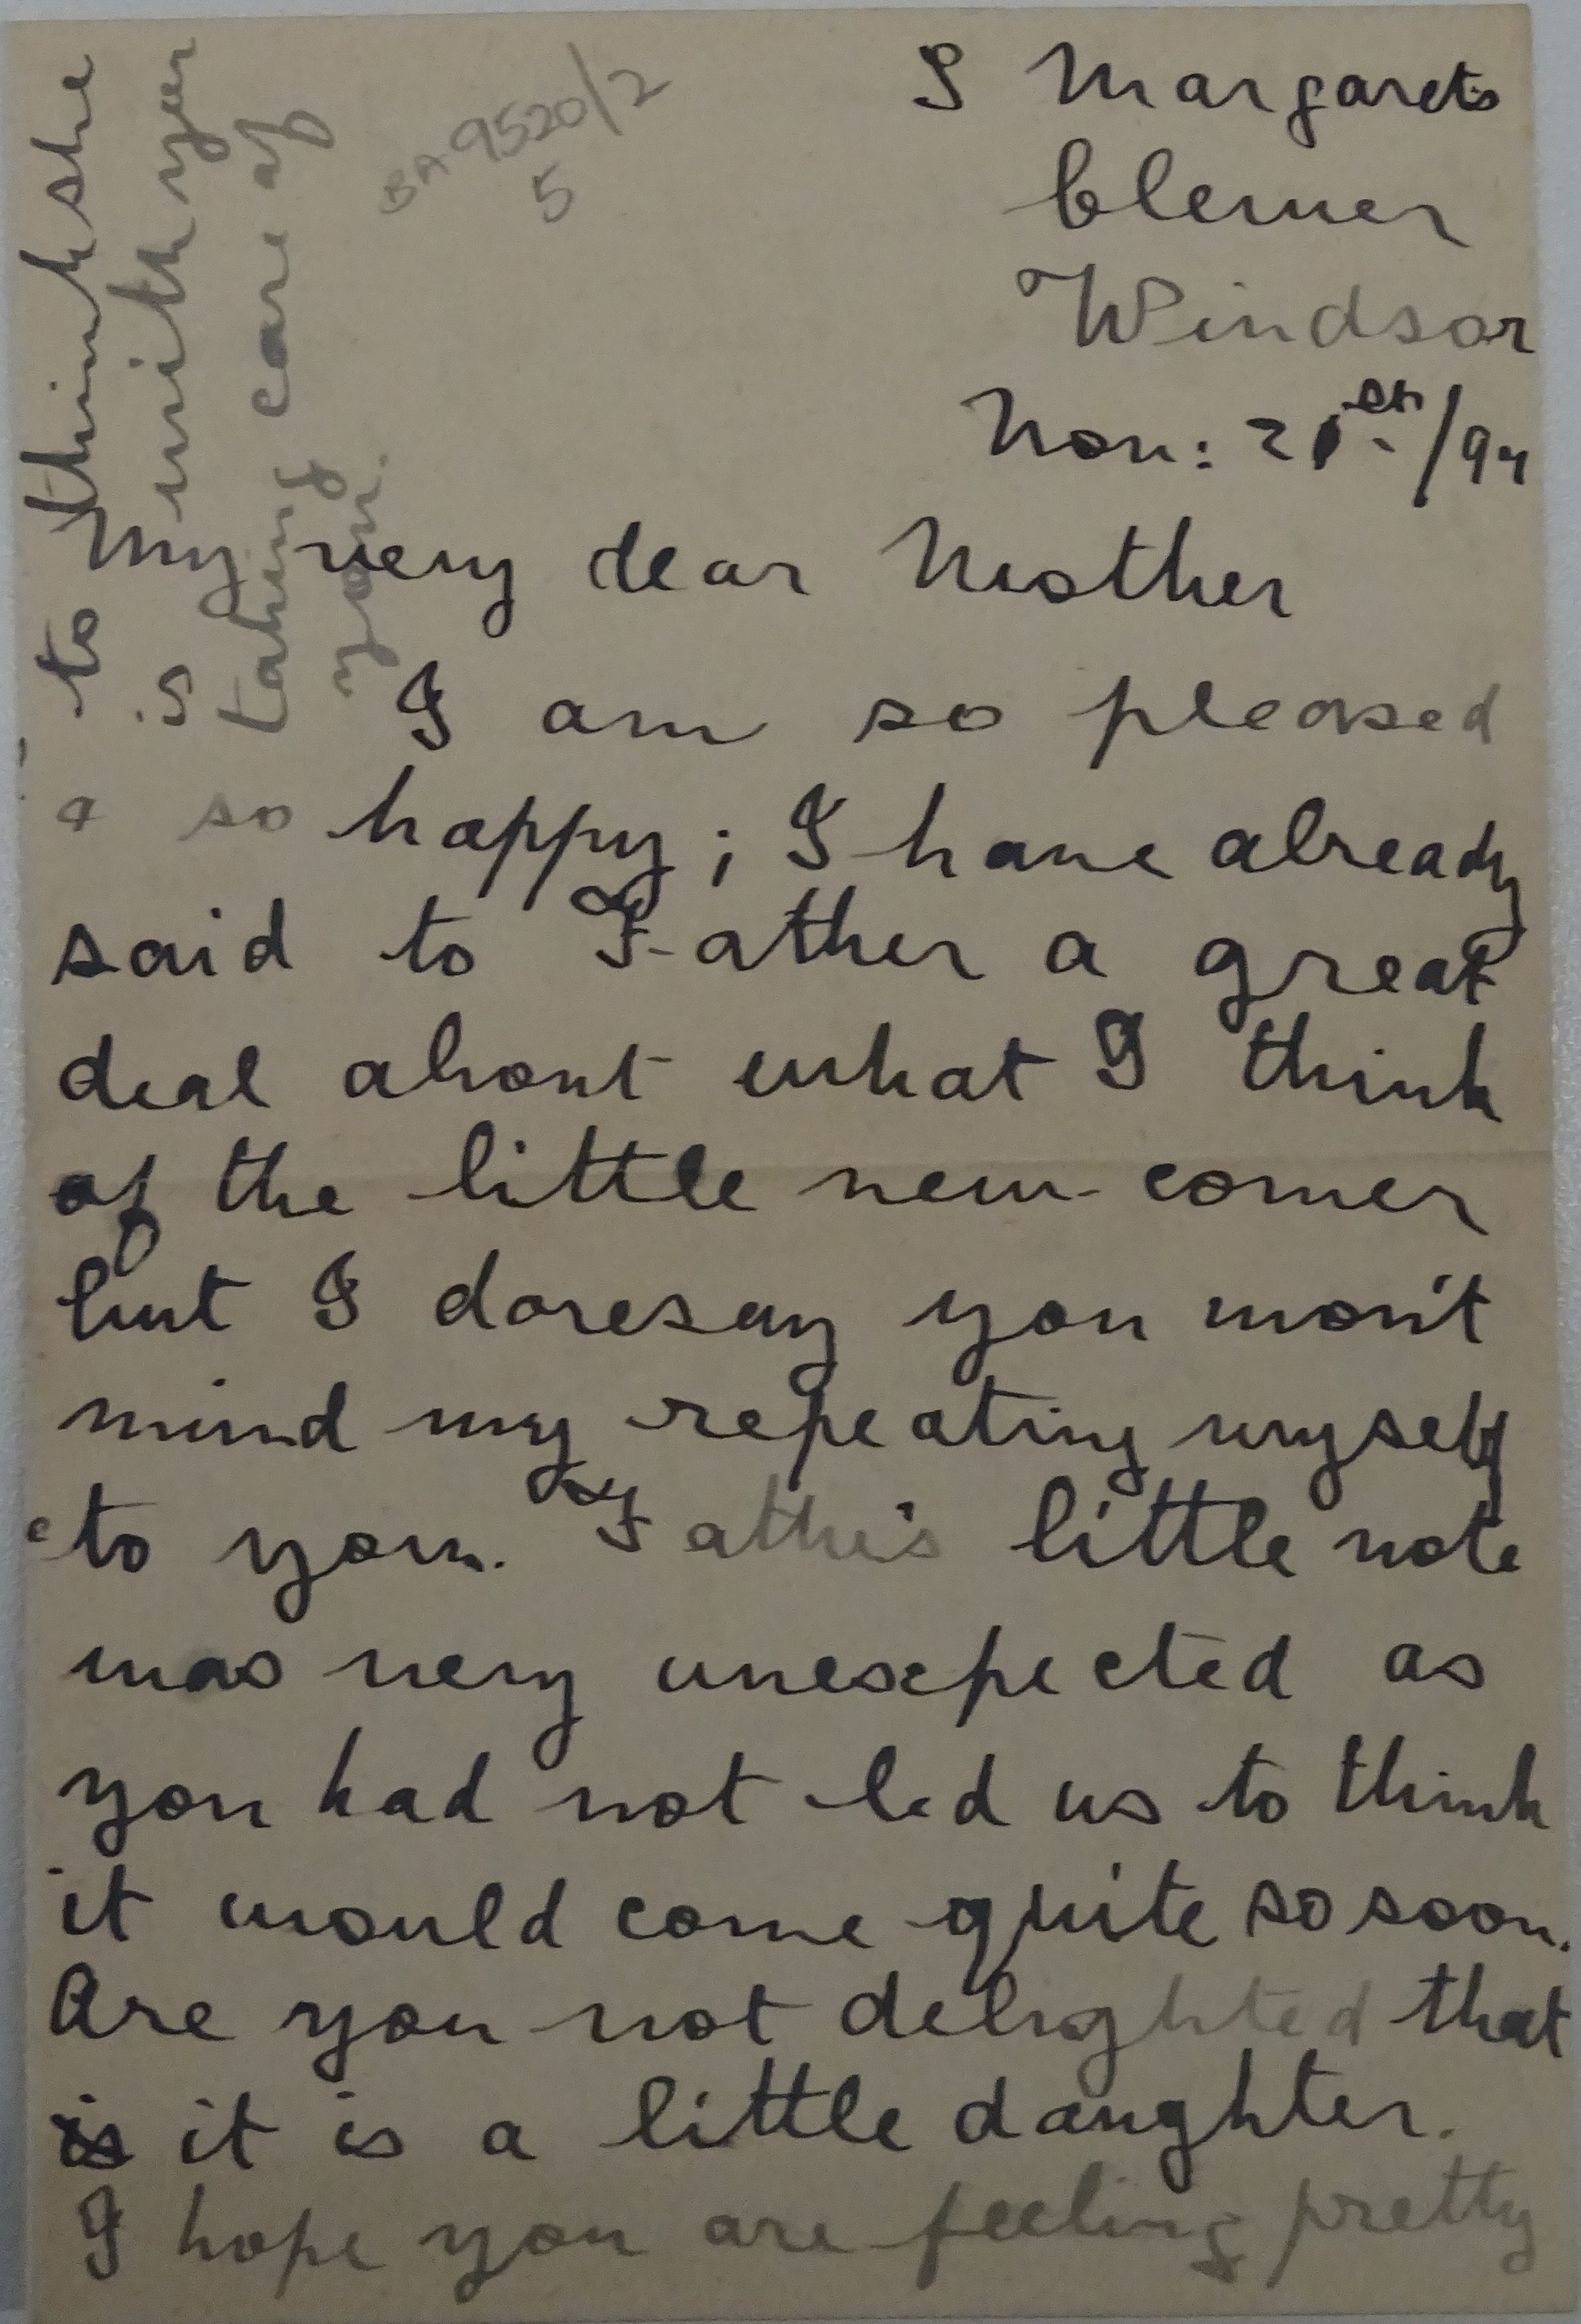 S Margarets
Clewer
Windsor
Nov: 21st/94
BA 9520/2
5
My very dear Mother
I am so pleased
& so happy; I have already
said to Father a great
deal about what I think
of the little new-comer
but I daresay you won't
mind my repeating myself
to you. Father's little note
was very unexpected as
you had not led us to think
it would come quite so soon.
Are you not delighted that
is it is a little daughter.
I hope you are feeling pretty
to think she
is with you
taking care of
you.